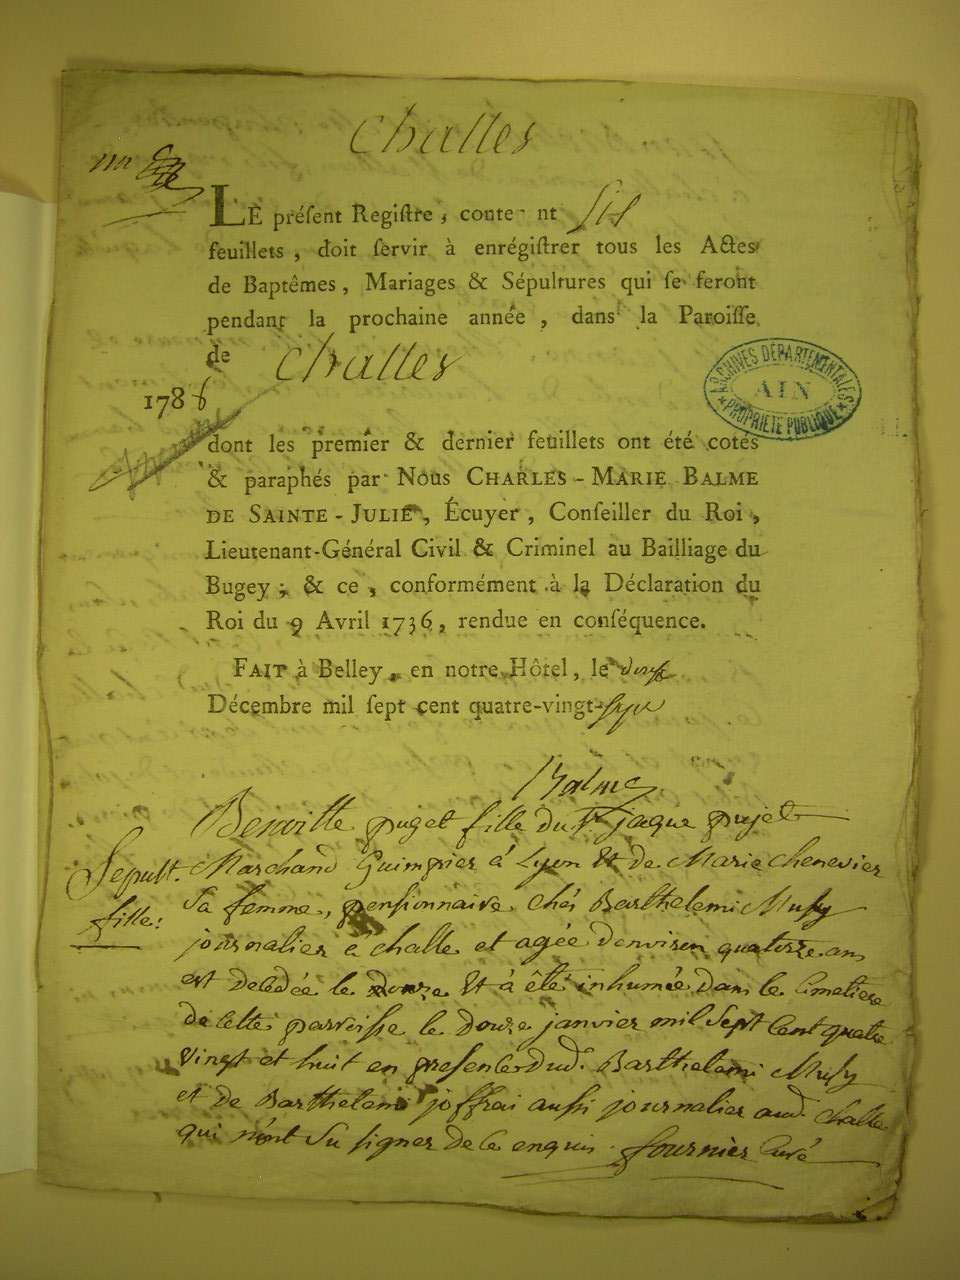 Challes
LE préſent Regiſtre, conte-nt six
feuillets, doit ſervir à enrégiſtrer tous les Actes
de Baptêmes, Mariages & Sépultures qui ſe feront
pendant la prochaine année, dans la Paroiſſe
de Challes
1788
ARCHIVES DÉPARTEMENTALES
AIN
PROPRIÉTÉ PUBLIQUE
dont les premier & dernier feuillets ont été cotés
& paraphés par Nous CHARLES-MARIE BALME
DE SAINTE-JULIE, Écuyer, Conſeiller du Roi,
Lieutenant-Général Civil & Criminel au Bailliage du
Bugey; & ce, conformément à la Déclaration du
Roi du 9 Avril 1736, rendue en conſéquence.
FAIT à Belley, en notre Hôtel, le douze
Décembre mil ſept cent quatre-vingt-sept
Balme
puget fille du Sr jaque pujet
Sepult. fille:
Marchand Guimpier à Lyon et de Marie chenevier
Sa femme, pensionnaire chés Barthelemi Musy
journalier a challe et agée denviron quatorze ans
est decedée le douze et à été inhumée dans le Cimetiere
de cette parroisse le douze janvier mil Sept Cent quatre
vingt et huit en presence dud. Barthelemi Musy
et de Barthelemi joffrai aussi journalier aud. challe
qui n'ont Su signer de ce enquis. fournier Curé